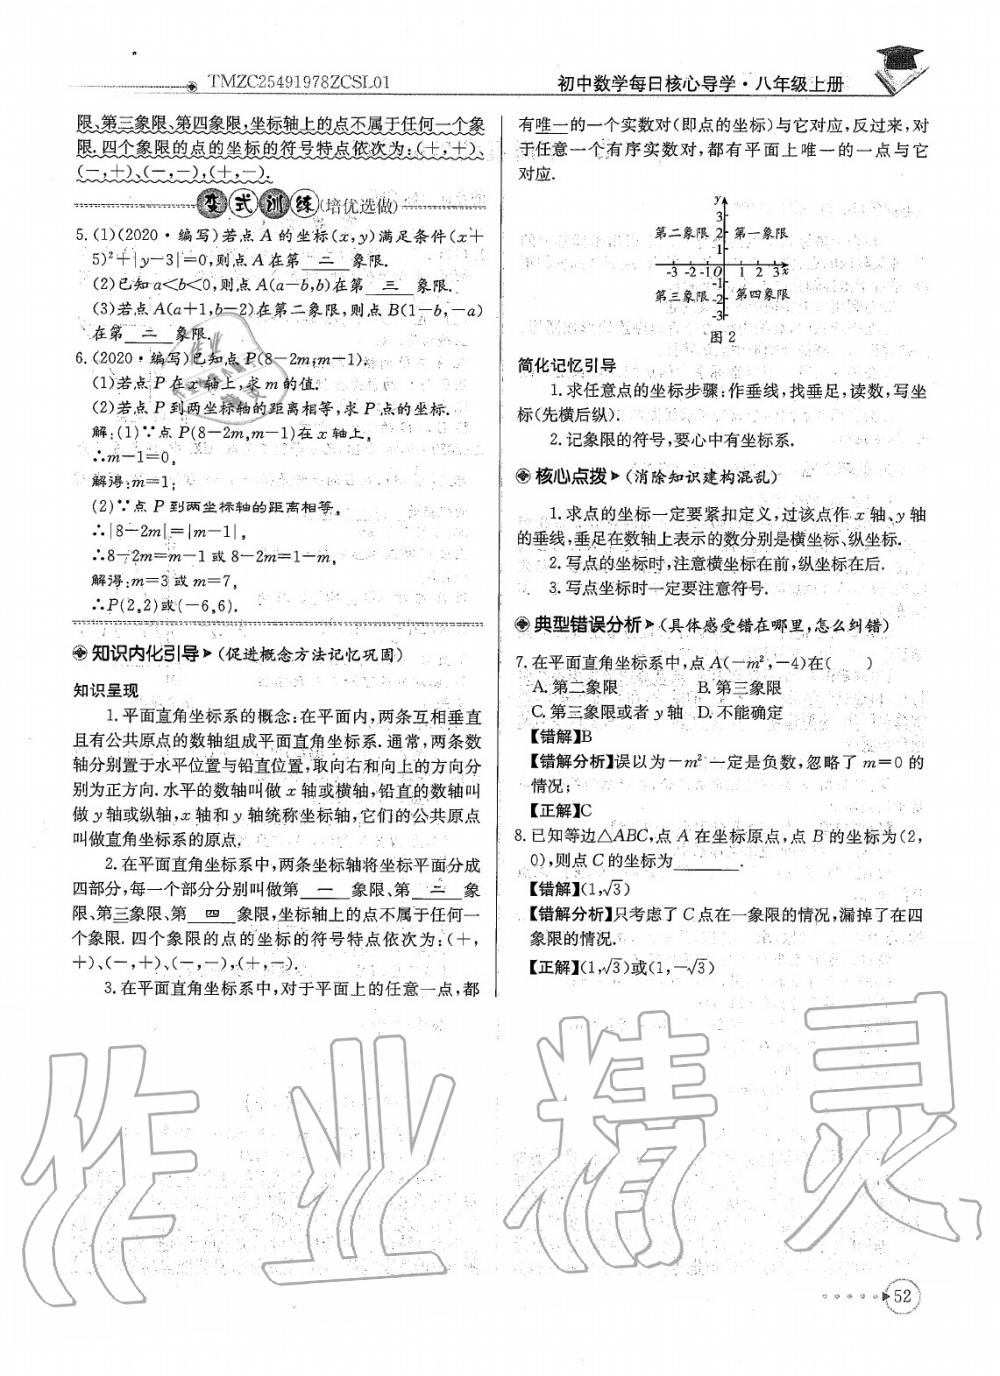 TMZC25491978ZCSL01
初中数学每日核心导学·八年级上册
限、第三象限、第四象限,坐标轴上的点不属于任何一个象
限.四个象限的点的坐标的符号特点依次为:(+,+)、
(-,+)、(-,-),(+,-).
变式训练(培优选做)
5.(1)(2020·编写)若点A的坐标(x,y)满足条件(x+
5)²+|y-3|=0,则点A在第 二 象限.
(2)已知a<b<0,则点A(a-b,b)在第 三 象限.
(3)若点A(a+1,b-2)在第二象限,则点B(1-b,-a)
在第 二 象限.
6.(2020·编写)已知点P(8-2m,m-1).
(1)若点P在x轴上,求m的值.
(2)若点P到两坐标轴的距离相等,求P点的坐标.
解:(1)∵点P(8-2m,m-1)在x轴上,
∴m-1=0,
解得:m=1;
(2)∵点P到两坐标轴的距离相等,
∴|8-2m|=|m-1|,
∴8-2m=m-1或8-2m=1-m,
解得:m=3或m=7,
∴P(2,2)或(-6,6).
知识内化引导(促进概念方法记忆巩固)
知识呈现
1.平面直角坐标系的概念:在平面内,两条互相垂直
且有公共原点的数轴组成平面直角坐标系.通常,两条数
轴分别置于水平位置与铅直位置,取向右和向上的方向分
别为正方向.水平的数轴叫做x轴或横轴,铅直的数轴叫
做y轴或纵轴,x轴和y轴统称坐标轴,它们的公共原点
叫做直角坐标系的原点.
2.在平面直角坐标系中,两条坐标轴将坐标平面分成
四部分,每一个部分分别叫做第 一 象限、第 二 象
限、第三象限、第 四 象限,坐标轴上的点不属于任何一
个象限.四个象限的点的坐标的符号特点依次为:(+,
+)、(-,+)、(-,-),(+,-).
3.在平面直角坐标系中,对于平面上的任意一点,都
有唯一的一个实数对(即点的坐标)与它对应,反过来,对
于任意一个有序实数对,都有平面上唯一的一点与它
对应.
y
3
第二象限 2 第一象限
1
-3 -2 -1 O 1 2 3 x
-1
第三象限 -2 第四象限
-3
图2
简化记忆引导
1.求任意点的坐标步骤:作垂线,找垂足,读数,写坐
标(先横后纵).
2.记象限的符号,要心中有坐标系.
核心点拨(消除知识建构混乱)
1.求点的坐标一定要紧扣定义,过该点作x轴、y轴
的垂线,垂足在数轴上表示的数分别是横坐标、纵坐标.
2.写点的坐标时,注意横坐标在前,纵坐标在后.
3.写点坐标时一定要注意符号.
典型错误分析(具体感受错在哪里,怎么纠错)
7.在平面直角坐标系中,点A(-m²,-4)在( )
A.第二象限 B.第三象限
C.第三象限或者y轴 D.不能确定
【错解】B
【错解分析】误以为-m²一定是负数,忽略了m=0的
情况;
【正解】C
8.已知等边△ABC,点A在坐标原点,点B的坐标为(2,
0),则点C的坐标为______.
【错解】(1,√3)
【错解分析】只考虑了C点在一象限的情况,漏掉了在四
象限的情况.
【正解】(1,√3)或(1,-√3)
作业精灵
52